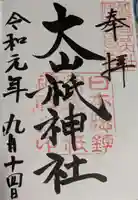 奉拝
大山祇神社
令和元年九月十四日